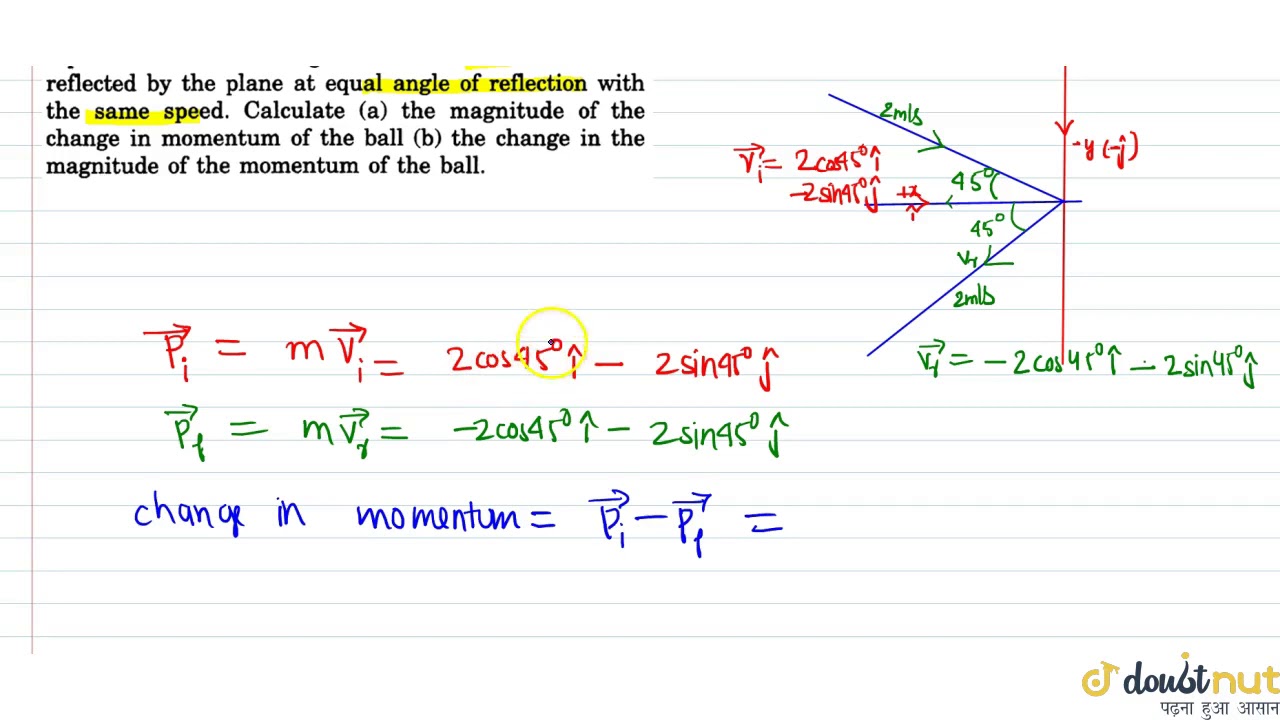 reflected by the plane at equal angle of reflection with
the same speed. Calculate (a) the magnitude of the
change in momentum of the ball (b) the change in the
magnitude of the momentum of the ball.
2m/s
-y(-ĵ)
V⃗i = 2cos45°î
-2sin45°ĵ
+x
î
45°
45°
Vr
2m/s
V⃗r = -2cos45°î - 2sin45°ĵ
P⃗i = mV⃗i = 2cos45°î - 2sin45°ĵ
P⃗f = mV⃗r = -2cos45°î - 2sin45°ĵ
change in momentum = P⃗i - P⃗f =
doubtnut
पढ़ना हुआ आसान